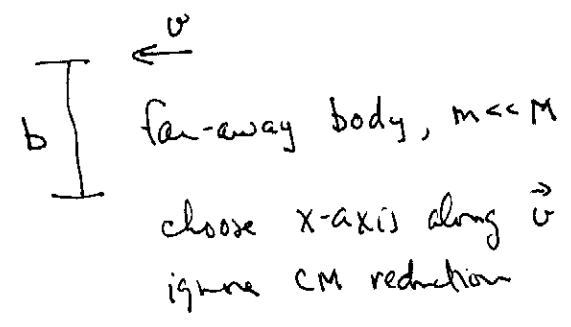 v
b
far-away body, m<<M
choose x-axis along v⃗
ignore CM reduction